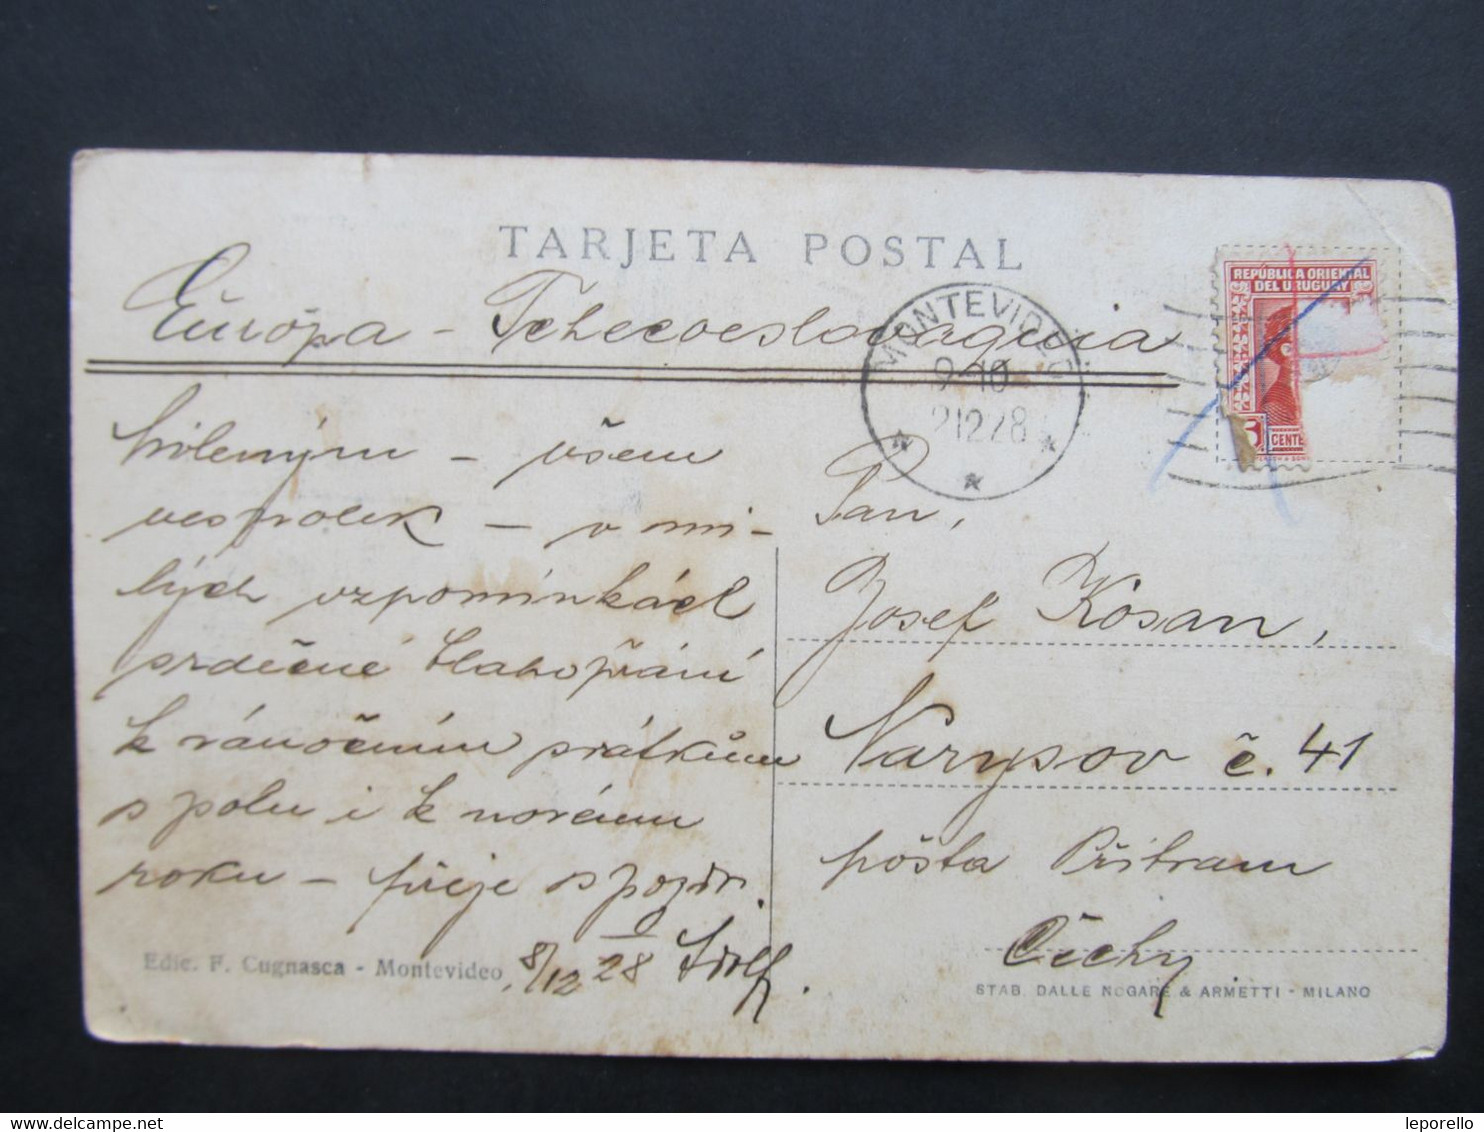 TARJETA POSTAL
Európa - Tchecoeslovaquia
MONTEVIDEO
9-10
21228
REPÚBLICA ORIENTAL
DEL URUGUAY
5 CENTE
všem
vespolek - v mi-
lých vzpomínkách
srdečné blahopřání
k vánočním svátkům
spolu i k novému
roku - přeje s pozdr.
8/12 28 Adolf.
Pan,
Josef Kósan,
Narysov č. 41
pošta Přibram
Čechy
Edic. F. Cugnasca - Montevideo
STAB. DALLE NOGARE & ARMETTI - MILANO
leporello